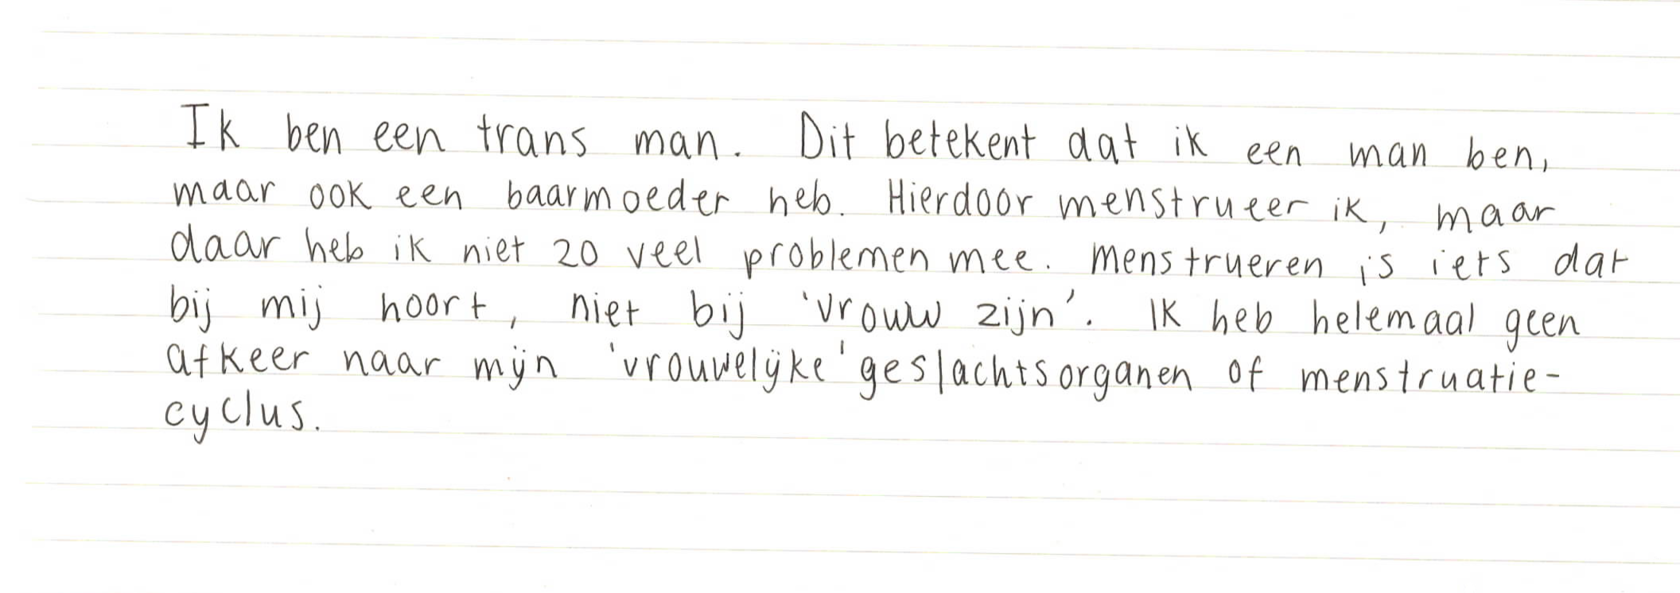 Ik ben een trans man. Dit betekent dat ik een man ben,
maar ook een baarmoeder heb. Hierdoor menstrueer ik, maar
daar heb ik niet zo veel problemen mee. Menstrueren is iets dat
bij mij hoort, niet bij 'vrouw zijn'. Ik heb helemaal geen
afkeer naar mijn 'vrouwelijke' geslachtsorganen of menstruatie-
cyclus.